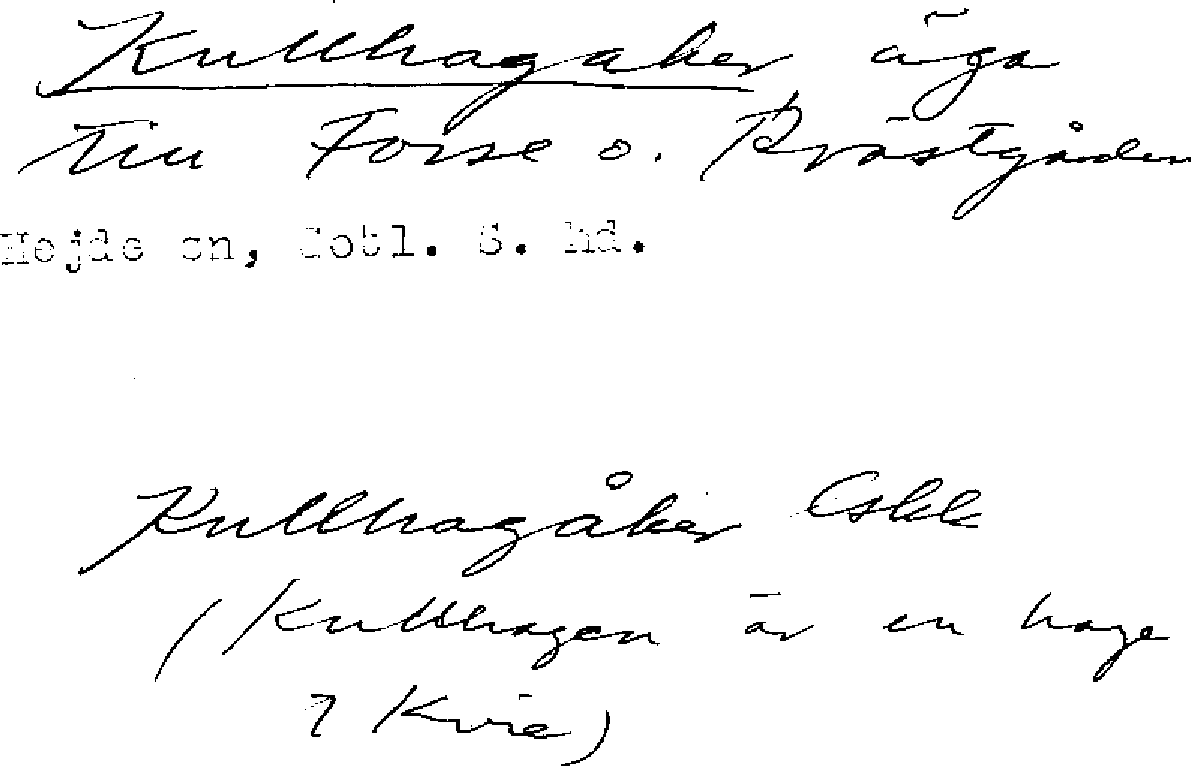 Kullhagaker äga
till Forse o. Prästgården
Hejde sn, Gotl. S. hd.
Kullhagåker
(Kullhagen är en hage
? Kvie)